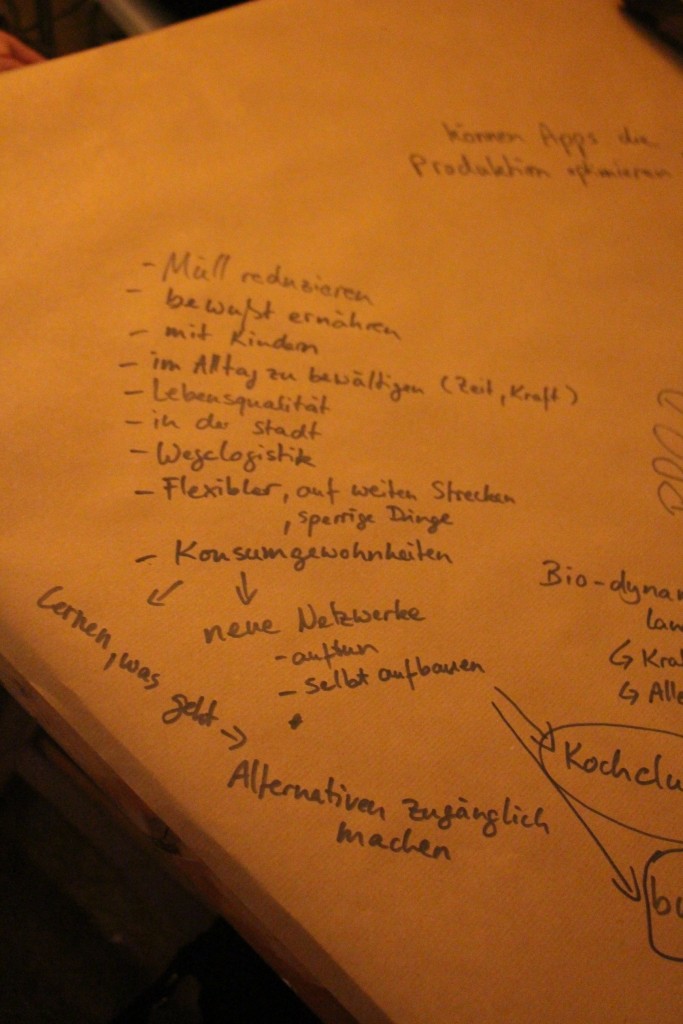 können Apps die
Produktion optimieren
- Müll reduzieren
- bewußt ernähren
- mit Kindern
- im Alltag zu bewältigen (Zeit, Kraft)
- Lebensqualität
- in der Stadt
- Wegelogistik
- Flexibler, auf weiten Strecken
, sperrige Dinge
- Konsumgewohnheiten
↙ ↓
lernen, was geht →
neue Netzwerke
- auftun
- selbst aufbauen
Alternativen zugänglich
machen
Bio-dynam
lan
↳ Kra
↳ Alle
Kochclu
bu